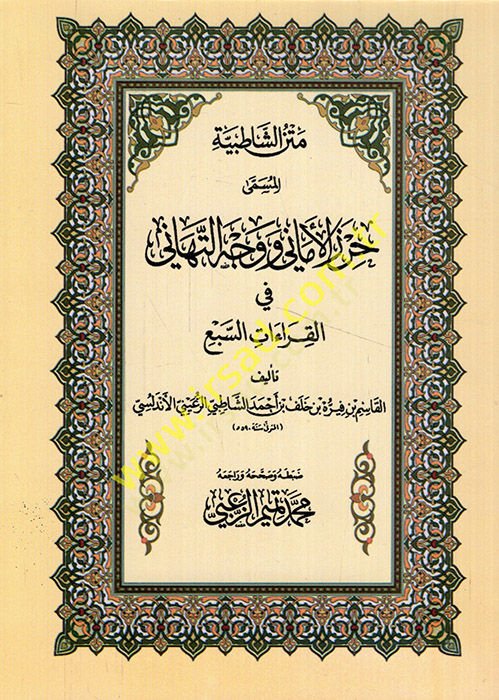 مَتْنُ الشَّاطِبِيَّةِ
المُسَمَّى
حِرْزُ الأَمَانِي وَوَجْهُ التَّهَانِي
فِي
القِرَاءَاتِ السَّبْعِ
تأليف
القَاسِم بن فِيرُّه بن خَلَف بن أَحمَد الشَّاطِبِي الرُّعَيْنِي الأَنْدَلُسِي
(المتوفى سنة ٥٩٠ هـ)
ضبطَهُ وصَحَّحَهُ وَرَاجَعَهُ
محمد تميم الزعبي
www.irsad.com.tr